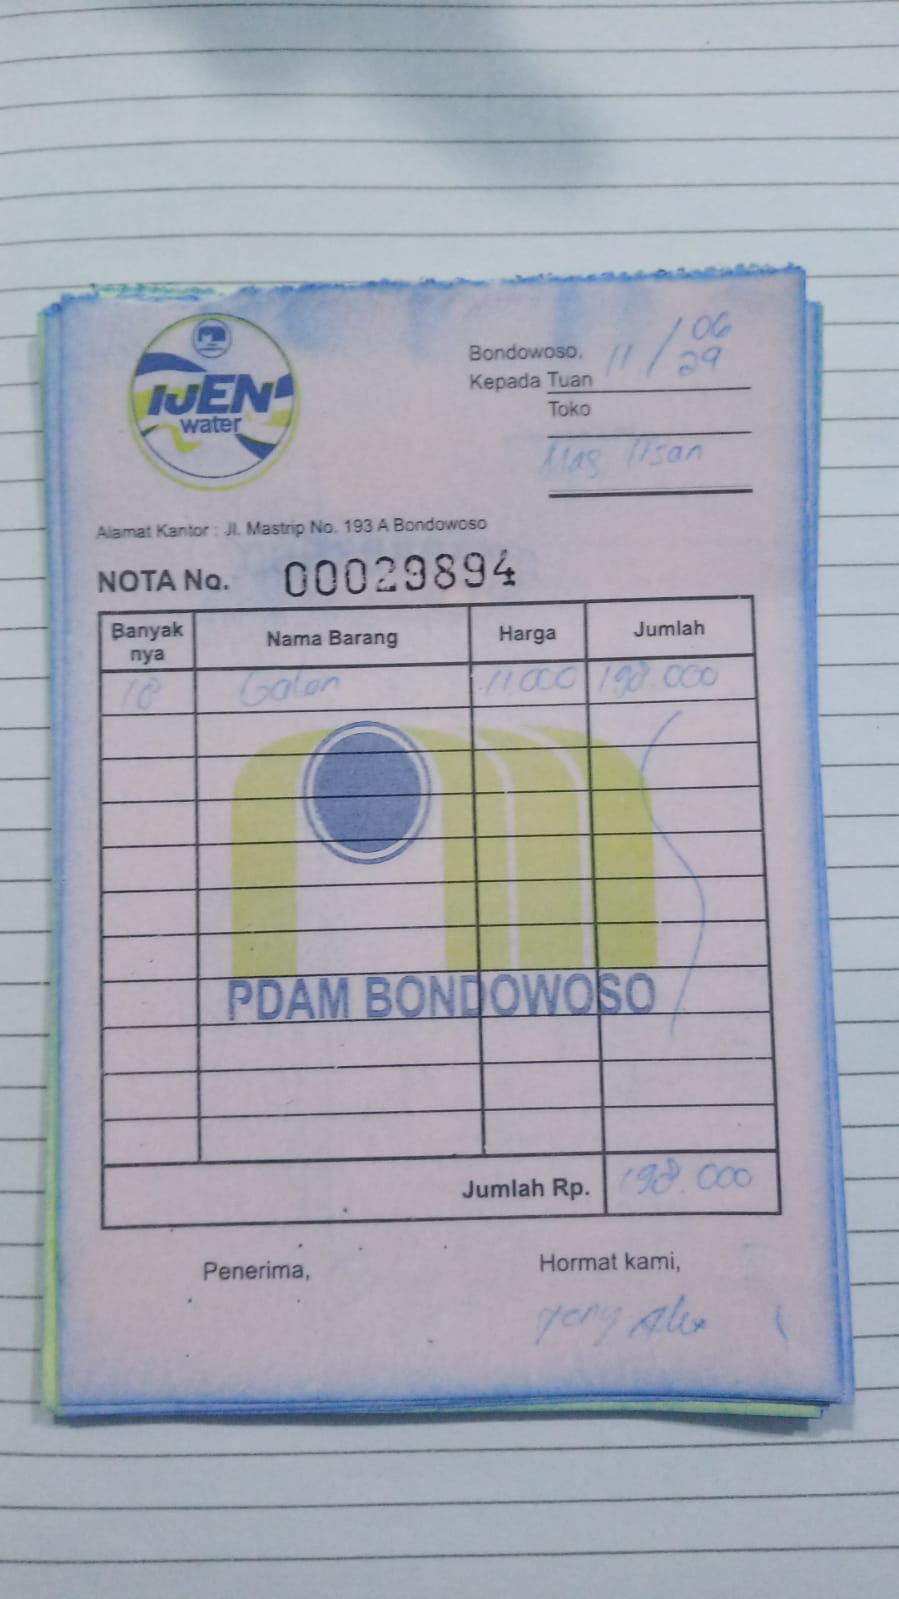 IJEN
water
Bondowoso, 11 / 06
29
Kepada Tuan
Toko
Mas
Alamat Kantor : Jl. Mastrip No. 193 A Bondowoso
NOTA No. 00029894
Banyak nya Nama Barang Harga Jumlah
18 Galon 11.000 198.000
PDAM BONDOWOSO
Jumlah Rp. 198.000
Penerima, Hormat kami,